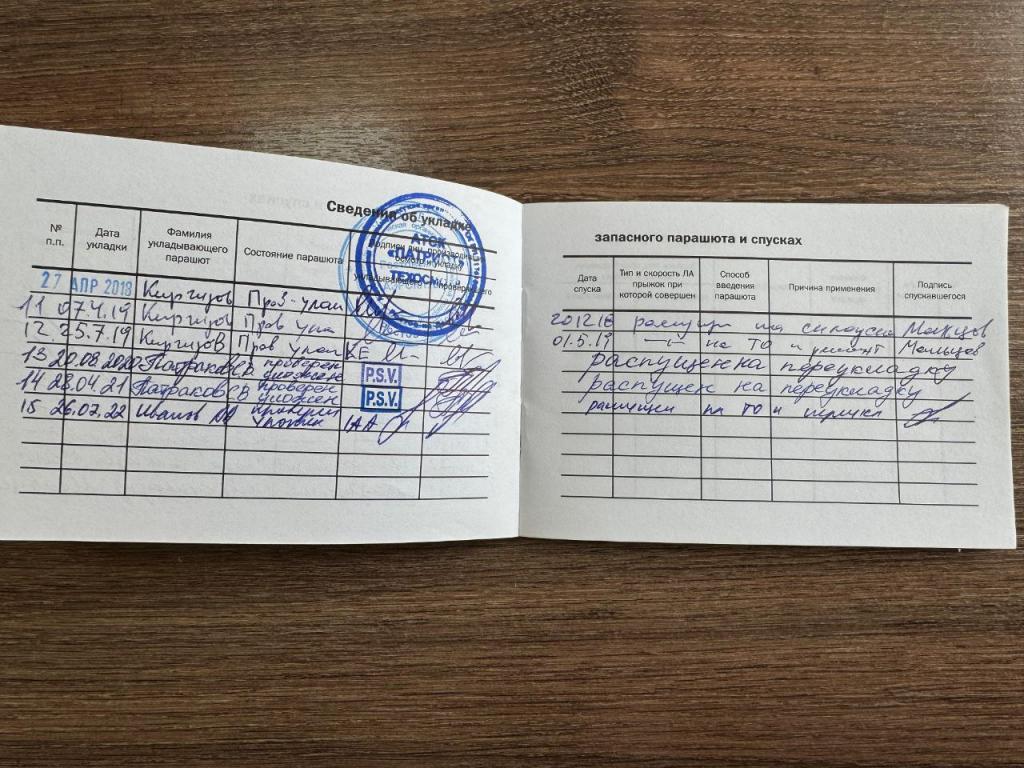 Сведения об укладке
№ п.п.
Дата укладки
Фамилия укладывающего парашют
Состояние парашюта
АТСК
«ПАТРИОТ»
ТЕХОСМОТР
27 АПР 2018 Киргизов Пров-улож
11 07.4.19 Киргизов Пров
12 25.7.19 Киргизов Пров КЕ
13 20.08.2020 Патраков СВ проверен уложен P.S.V.
14 28.04.21 Патраков СВ проверен уложен P.S.V.
15 26.02.22 Иванов проверен уложен
запасного парашюта и спусках
Дата спуска
Тип и скорость ЛА прыжок при которой совершен
Способ введения парашюта
Причина применения
Подпись спускавшегося
20.12.18 на
01.5.19 —"— на ТО и ремонт Мальцев
распущен на переукладку
распущен на переукладку
распущен на ТО и